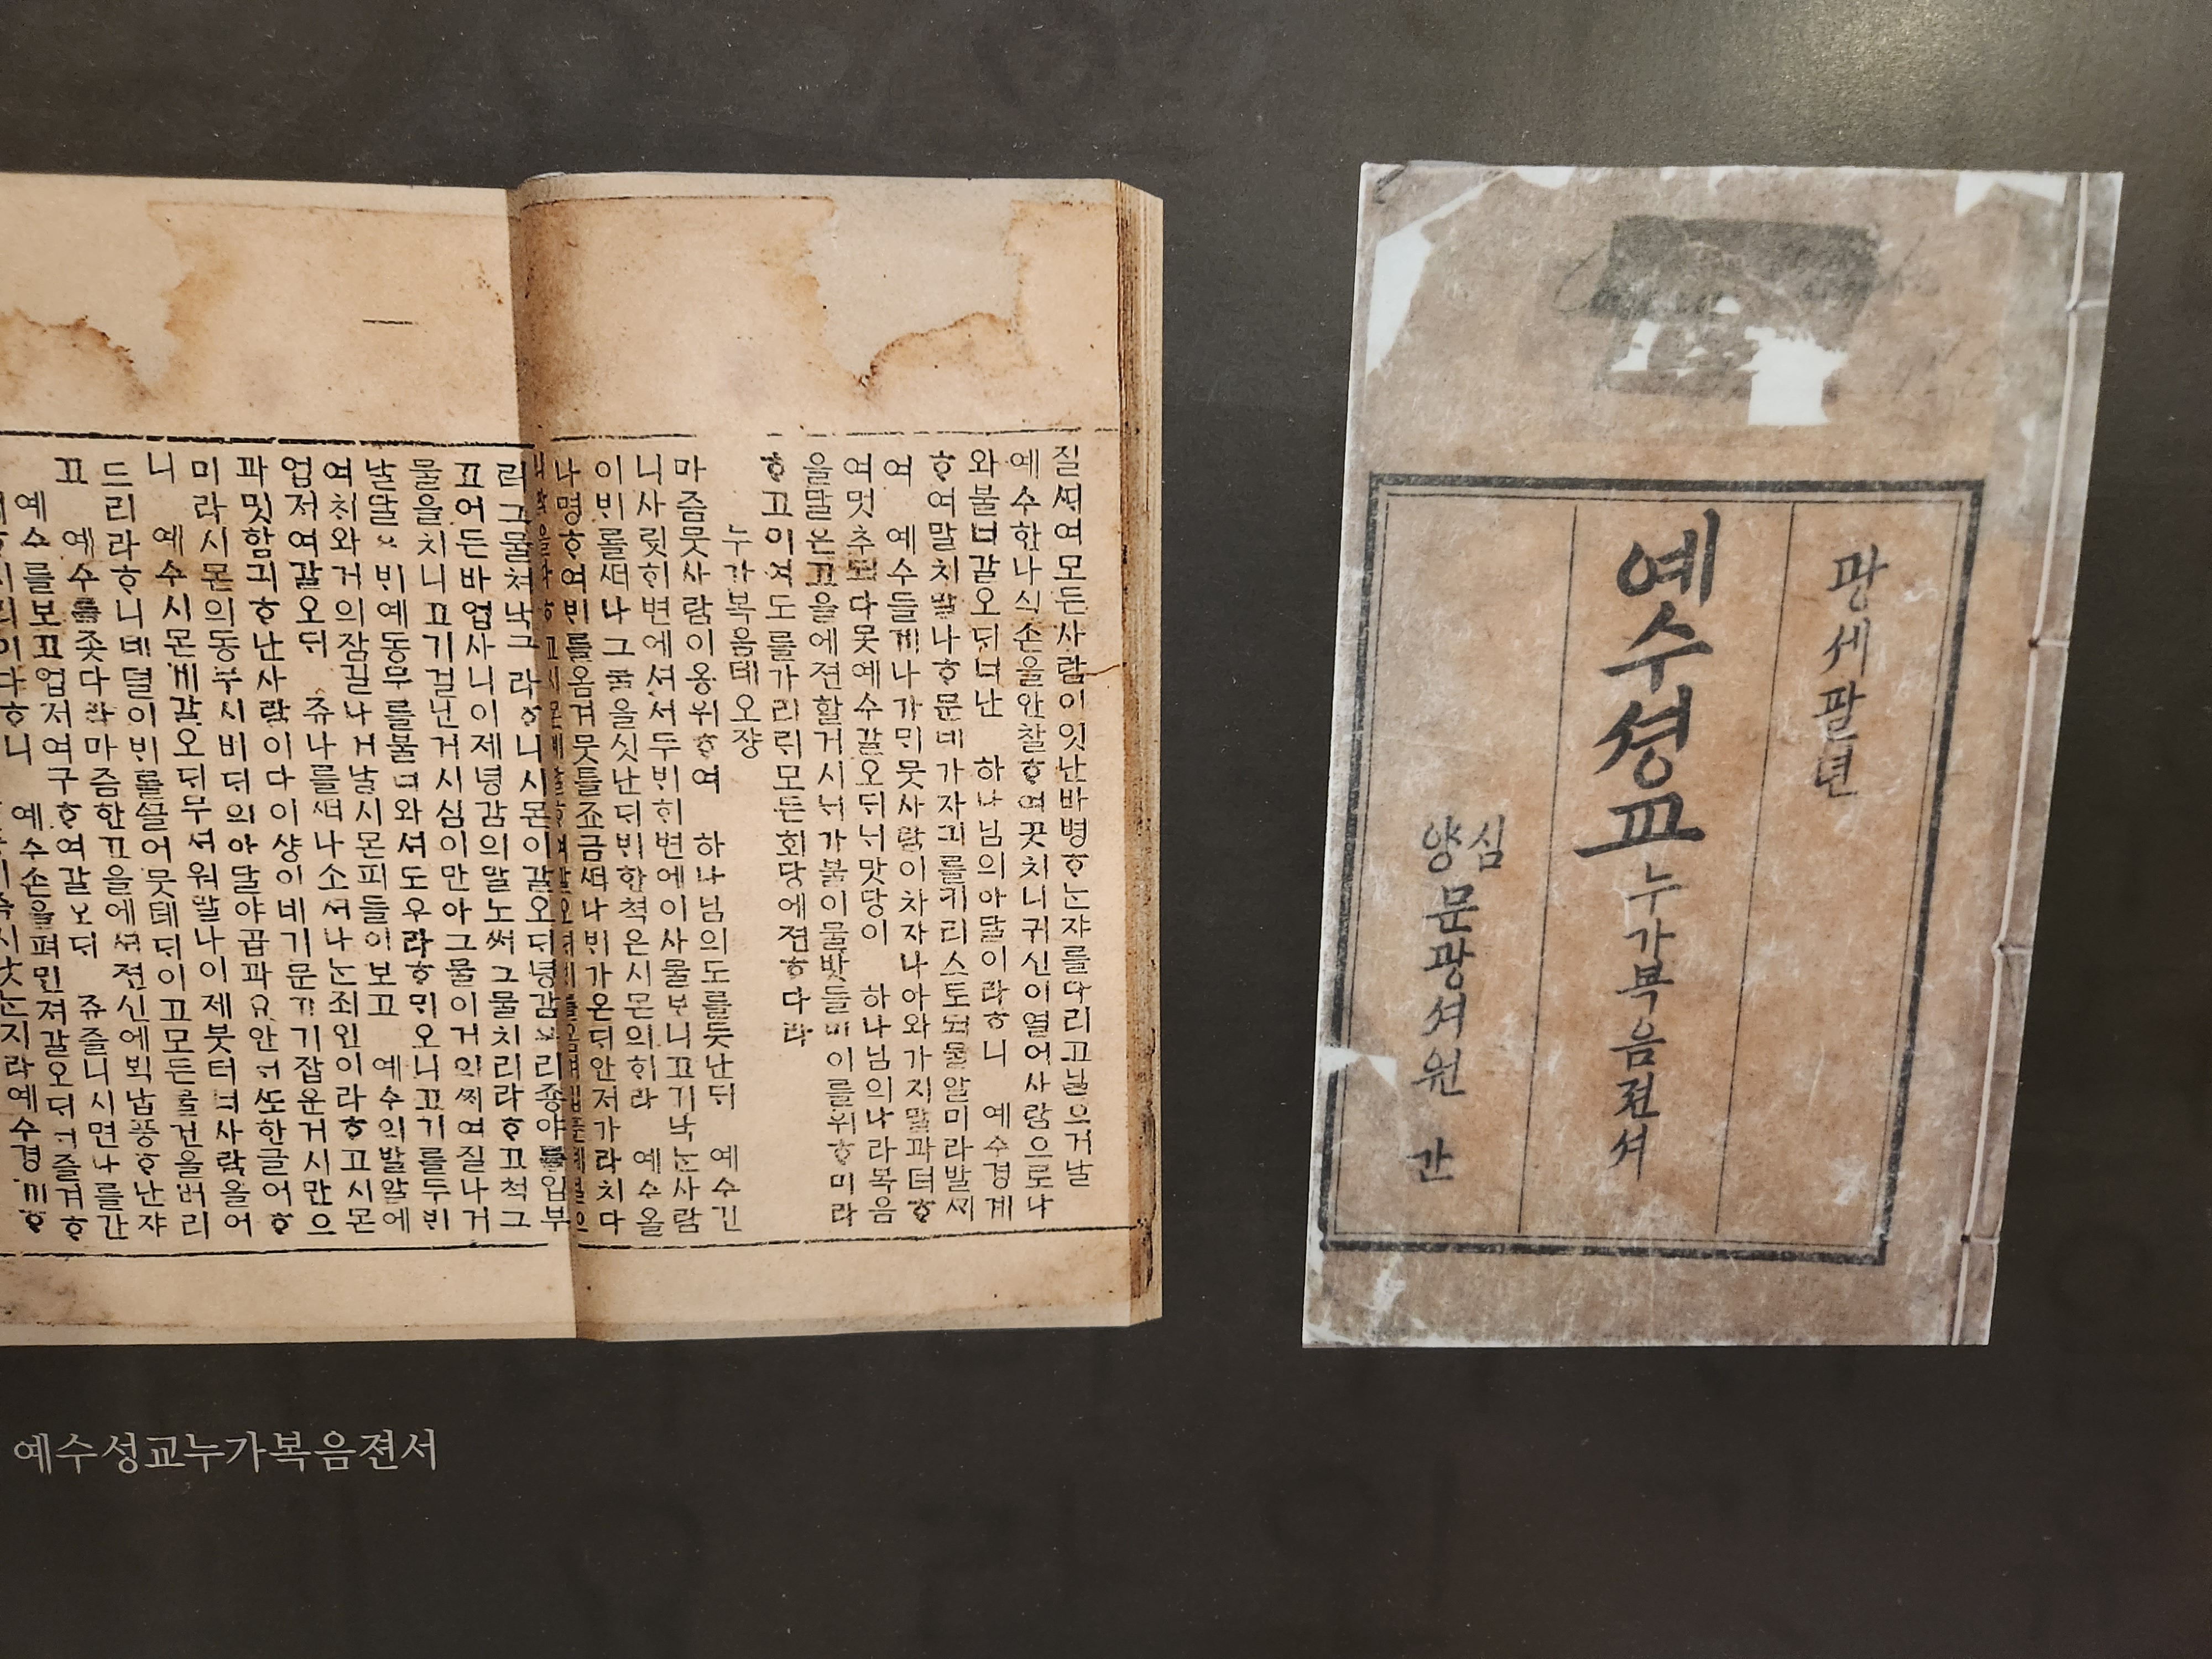 질ᄯᅢ여모든사람이잇난바병ᄒᆞ눈쟈를다리고닐으거날
예수한나식손을안찰ᄒᆞ여곳치니귀신이열어사람으로나
와불너갈오ᄃᆡ너난 하나님의아달이라ᄒᆞ니 예수경계
ᄒᆞ여말치말나ᄒᆞ문데가자긔를키리스토되물알미라발ᄡᅵ
여 예수들게나가ᄆᆡ뭇사람이차자나아와가지말과뎌ᄒᆞ
여멋추되다못예수갈오ᄃᆡᄂᆡ맛당이 하나님의나라복음
을달은고을에젼할거시니가불이물밧들미이를위ᄒᆞ미라
ᄒᆞ고이여도를가리ᄅᆡ모든회당에젼ᄒᆞ다라
누가복음데오쟝
마즘뭇사람이옹위ᄒᆞ여 하나님의도를듯난ᄃᆡ 예수긴
니사ᄅᆡᆺ히변에셔서두ᄇᆡ히변에이사물보니고기낙눈사람
이ᄇᆡ롤ᄯᅥ나그물을싯난ᄃᆡᄇᆡ한척은시몬의히라 예수올
나명ᄒᆞ여ᄇᆡ를옴겨뭇틀죠금ᄯᅥ나ᄇᆡ가온ᄃᆡ안저가라치다
리그물쳐낙그라ᄒᆞ니시몬이갈오ᄃᆡ녕감
고어든바업사니이제녕감의말노ᄡᅥ그물치리라ᄒᆞ고척그
물을치니고기걸닌거시심이만아그물이거의ᄶᅵ여질나거
날달은ᄇᆡ예동무를불너와셔도우라ᄒᆞᄆᆡ오니고기를두ᄇᆡ
여치와거의잠길나거날시몬피들이보고 예수의발알에
업저여갈오ᄃᆡ 쥬나를ᄯᅥ나소셔나눈죄인이라ᄒᆞ고시몬
과밋함긔ᄒᆞ난사람이다이샹이네기문고기잡운거시만으
미라시몬의동무시비ᄃᆡ의아달야곱파요안너ᄯᅩ한글어ᄒᆞ
니 예수시몬게갈오ᄃᆡ무셔워말나이제붓터너사람을어
드리라ᄒᆞ니데덜이ᄇᆡ를ᄭᅳᆯ어뭇테ᄃᆡ이고모든물건을버리
고 예수를좃다라마즘한고을에셔젼신에ᄇᆡᆨ납풍ᄒᆞ난쟈
예수를보고업저여구ᄒᆞ여갈오ᄃᆡ 쥬즐니시면나를간
예수손을펴민져갈오ᄃᆡᄂᆡ즐겨ᄒᆞ
광셰팔년
예수셩교누가복음젼셔
심양
문광셔원 간
예수성교누가복음젼서